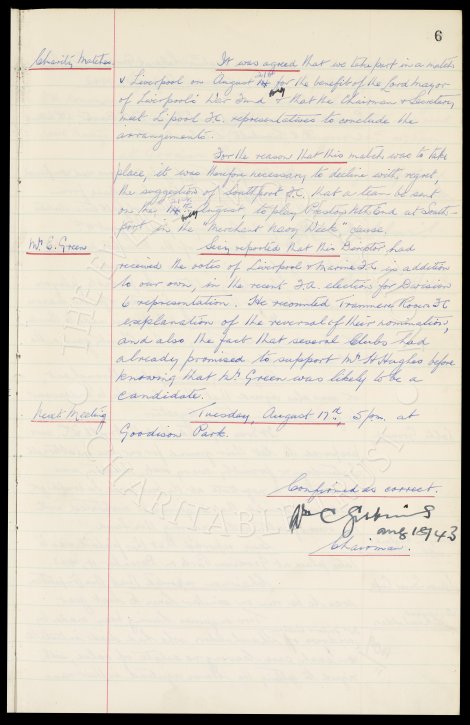 6
Charity Matches. It was agreed that we take part in a match
v Liverpool on August 21st for the benefit of the Lord Mayor
of Liverpool's War Fund & that the Chairman & Secretary
meet L'pool F.C. representatives to conclude the
arrangements.
For the reason that this match was to take
place, it was therefore necessary to decline with regret,
the suggestion of Southport F.C. that a team be sent
on the 21st August, to play Preston Nth End at South-
port in the "Merchant Navy Week" cause.
Mr. E. Green Secy reported that this Director had
received the votes of Liverpool & Marine F.C. in addition
to our own, in the recent F.A. election for Division
6 representation. He recounted Tranmere Rovers F.C.
explanation of the reversal of their nomination,
and also the fact that several Clubs had
already promised to support Mr. H. Hughes before
knowing that Mr. Green was likely to be a
candidate.
Next Meeting Tuesday, August 17th, 5pm. at
Goodison Park.
Confirmed as correct.
Wm C Gibbins
Aug 1943
Chairman.
THE EVERTON
CHARITABLE TRUST